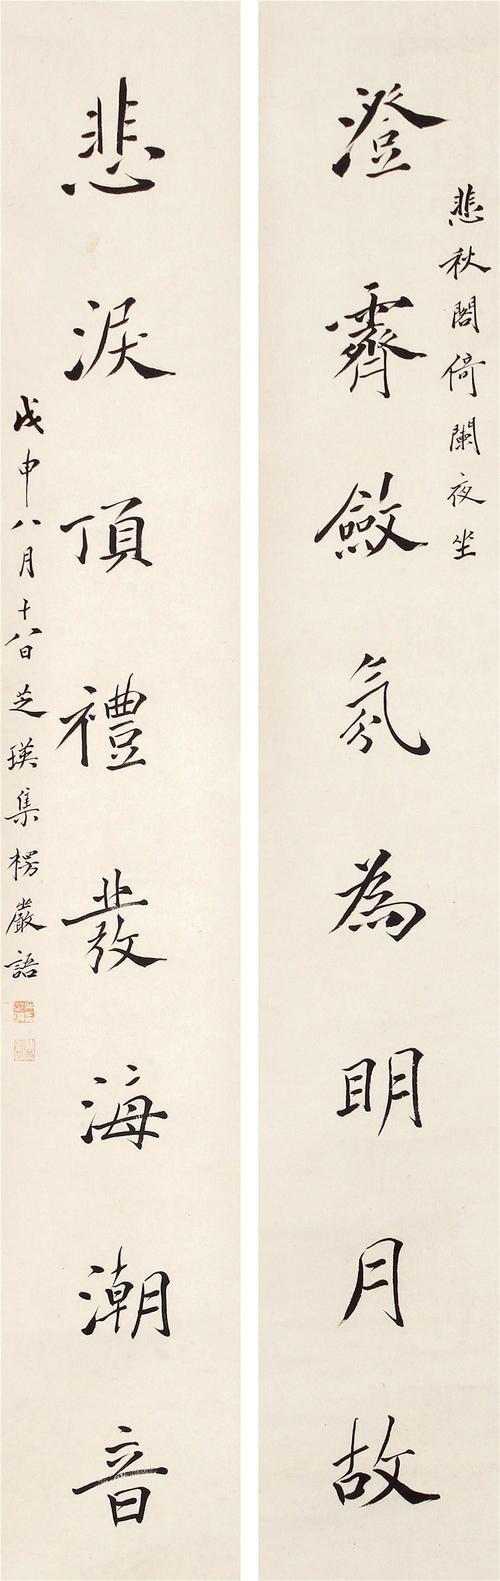 悲秋閣倚闌夜坐
澄霽斂氛為明月故
悲淚頂禮發海潮音
戊申八月十八日芝瑛集楞嚴語